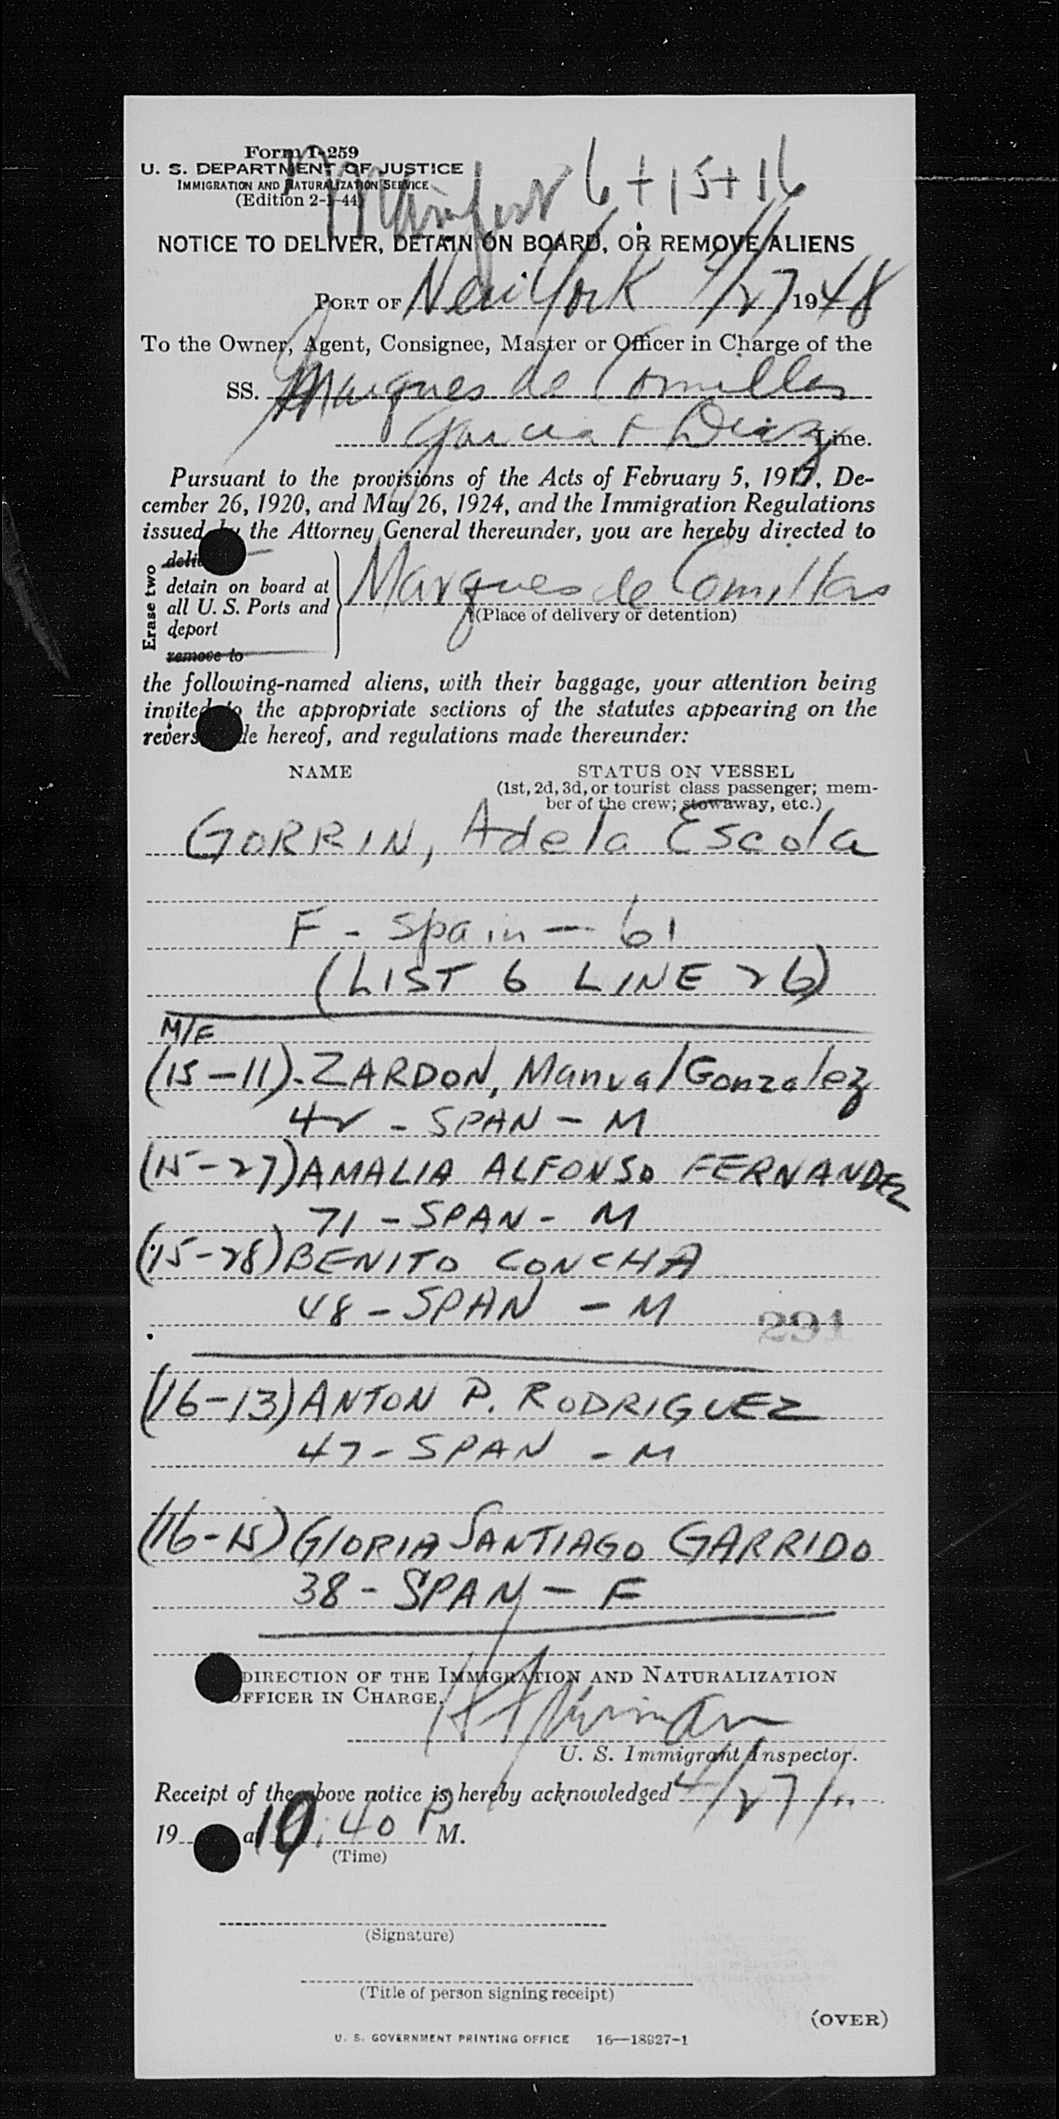 Form I-259
U. S. DEPARTMENT OF JUSTICE
IMMIGRATION AND NATURALIZATION SERVICE
(Edition 2-1-44)
Manifest 6 + 15 + 16
NOTICE TO DELIVER, DETAIN ON BOARD, OR REMOVE ALIENS
PORT OF New York 4/27 1948
To the Owner, Agent, Consignee, Master or Officer in Charge of the
SS. Marques de Comillas
Garcia + Diaz Line.
Pursuant to the provisions of the Acts of February 5, 1917, De-
cember 26, 1920, and May 26, 1924, and the Immigration Regulations
issued by the Attorney General thereunder, you are hereby directed to
Erase two
detain on board at
all U. S. Ports and
deport
remove to
Marques de Comillas
(Place of delivery or detention)
the following-named aliens, with their baggage, your attention being
invited to the appropriate sections of the statutes appearing on the
reverse side hereof, and regulations made thereunder:
NAME STATUS ON VESSEL
(1st, 2d, 3d, or tourist class passenger; mem-
ber of the crew; stowaway, etc.)
GORRIN, Adela Escola
F - Spain - 61
(LIST 6 LINE 26)
M/F
(15-11). ZARDON, Manual Gonzalez
42 - SPAN - M
(15-27) AMALIA ALFONSO FERNANDEZ
71 - SPAN - M
(15-28) BENITO CONCHA
48 - SPAN - M
291
(16-13) ANTON P. RODRIGUEZ
47 - SPAN - M
(16-15) GLORIA SANTIAGO GARRIDO
38 - SPAN - F
DIRECTION OF THE IMMIGRATION AND NATURALIZATION
OFFICER IN CHARGE.
U. S. Immigrant Inspector.
Receipt of the above notice is hereby acknowledged 4/27/
19 at 10:40 P M.
(Time)
(Signature)
(Title of person signing receipt)
(OVER)
U. S. GOVERNMENT PRINTING OFFICE 16—18927-1